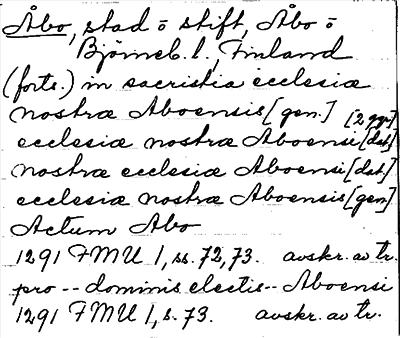 Åbo, stad o stift, Åbo o
Björneb. l., Finland
(forts.) in sacristia ecclesiæ
nostræ Aboensis [gen.] [2 ggr]
ecclesiæ nostræ Aboensi [dat.]
nostræ ecclesiæ Aboensi [dat.]
ecclesiæ nostræ Aboensis [gen.]
Actum Abo
1291 FMU 1, ss. 72, 73. avskr. av tr.
pro -- dominis electis -- Aboensi
1291 FMU 1, s. 73. avskr. av tr.